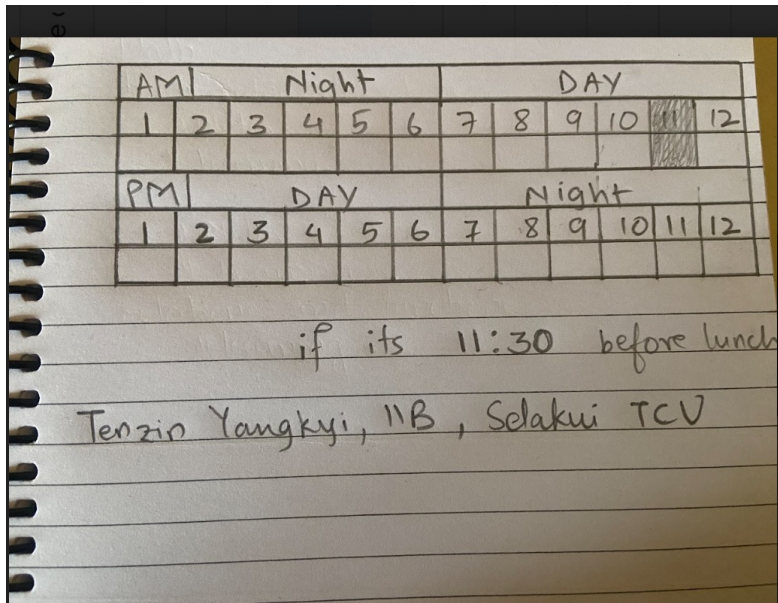 AM Night DAY
1 2 3 4 5 6 7 8 9 10 11 12
PM DAY Night
1 2 3 4 5 6 7 8 9 10 11 12
if its 11:30 before lunch
Tenzin Yangkyi, 11B, Selakui TCV